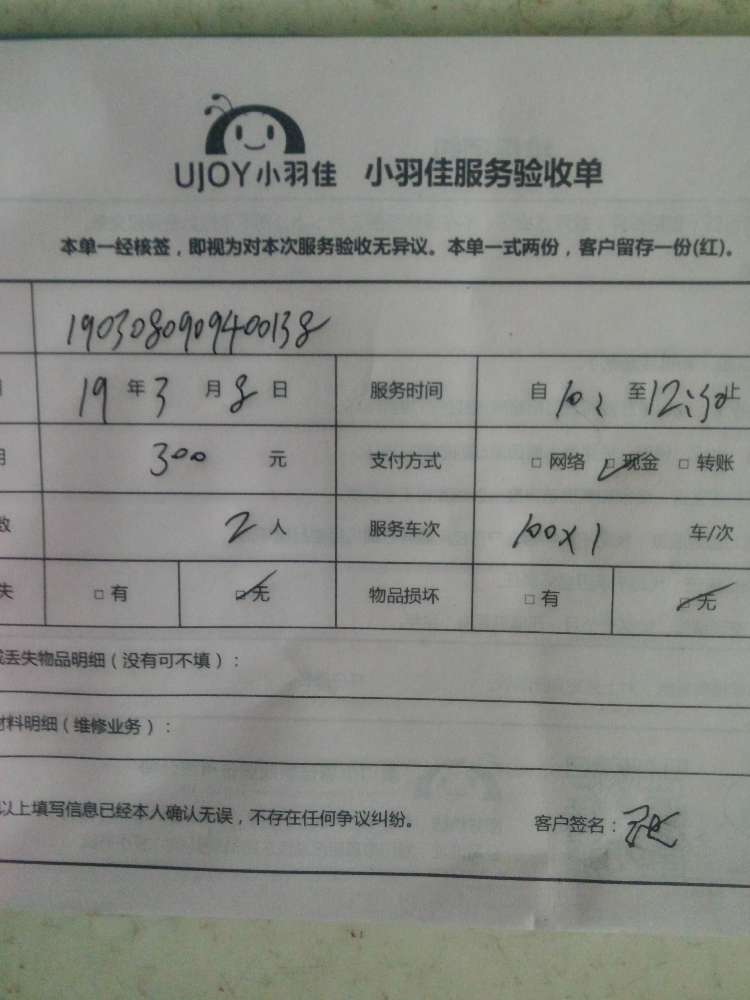 UJOY小羽佳 小羽佳服务验收单
本单一经核签，即视为对本次服务验收无异议。本单一式两份，客户留存一份(红)。
1903080909400138
19 年 3 月 8 日 服务时间 自 10: 至 12:30 止
300 元 支付方式 □ 网络 □ 现金 □ 转账
数 2 人 服务车次 100×1 车/次
失 □ 有 □ 无 物品损坏 □ 有 □ 无
丢失物品明细（没有可不填）：
材料明细（维修业务）：
以上填写信息已经本人确认无误，不存在任何争议纠纷。 客户签名：